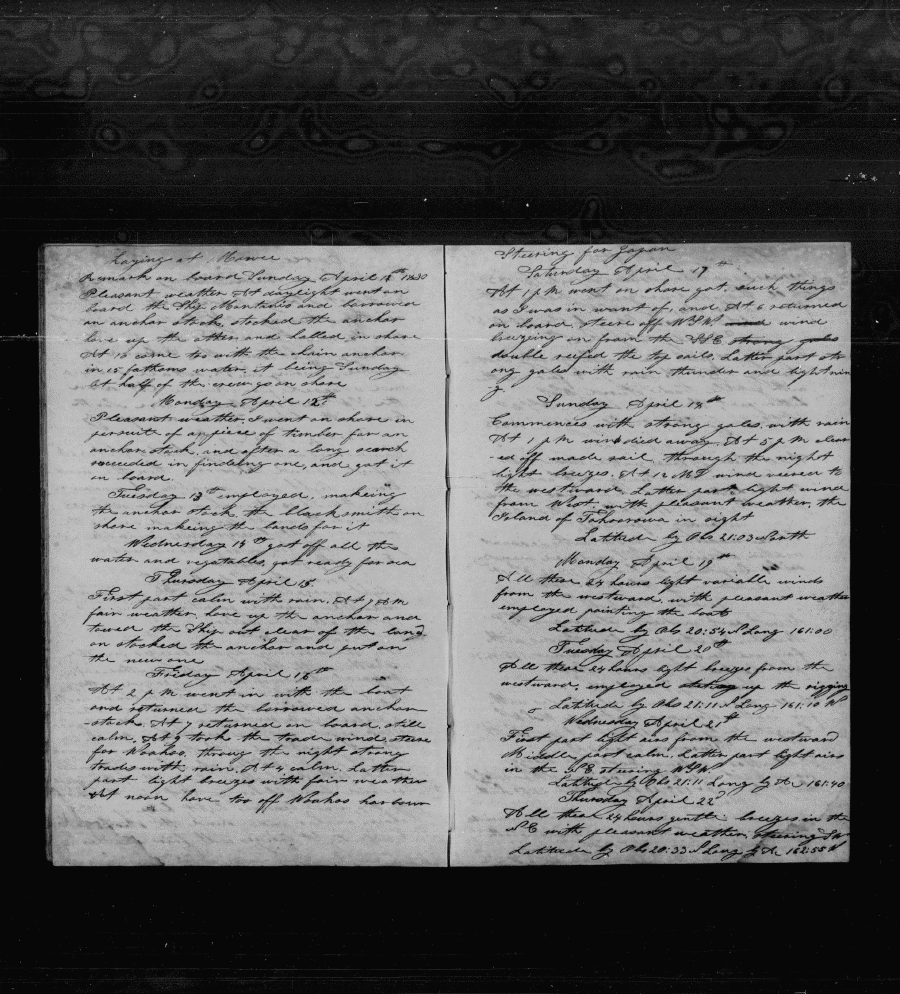 Laying at Mowee
Remark on board Sunday April 11th 1830
Pleasant weather At daylight went on
board the Ship and borrowed
an anchor stock, stocked the anchor
hove up the other and halled in shore
At 10 come too with the chain anchor
in 15 fathoms water, it being Sunday
let half of the crew go on shore
Monday April 12th
Pleasant weather I went on shore in
persuite of an piece of timber for an
anchor stock, and after a long search
succeeded in findeing one, and got it
on board.
Tuesday 13th employed, makeing
the anchor stock the blacksmith on
shore makeing the bands for it
Wednesday 14th got off all the
water and vegatables, got ready for sea
Thursday April 15.
First part calm with rain. At 7 AM
fair weather, hove up the anchor and
towed the Ship out clear of the land
on stocked the anchor and put on
the new one
Friday April 16th
At 2 PM went in with the boat
and returned the borrowed anchor
stock. At 7 returned on board, still
calm. At 9 took the trade wind, steere
for Woahoo, throug the night strong
trades with rain. At 4 calm. Latter
part light breezes with fair weather
At noon hove too off Woahoo harbour
Steering for Japan
Saturday April 17th
At 1 PM went on shore got, such things
as I was in want of, and At 6 returned
on board, steere off WSW. wind
breezing on from the SSE strong gales
double reefed the top sails. Latter part str
ong gales with rain thunder and lightnin
g.
Sunday April 18th
Commences with strong gales, with rain
At 1 PM wind died away. At 5 PM clear
-ed off made sail, through the night
light breezes. At 12 MD wind veered to
the westward. Latter part light wind
from West. with pleasant weather, the
Island of Tahoorowa in sight
Latitude by Obs 21:03 North
Monday April 19th
All these 24 hours light variable winds
from the westward, with pleasant weather
employed painting the boats
Latitude by Obs 20:54 N Long 161:00
Tuesday April 20th
All these 24 hours light breezes from the
westward, employed up the rigging
Latitude by Obs 21:11 N Long 161:10 W
Wednesday April 21st
First part light airs from the westward
Middle part calm. Latter part light airs
in the SE steering WSW.
by Obs 21:11 Long by A. 161:40
Thursday April 22d
All these 24 hours gentle breezes in the
SE with pleasant weather, steering
Latitude by Obs 20:33 N Long by A. 162:55 W